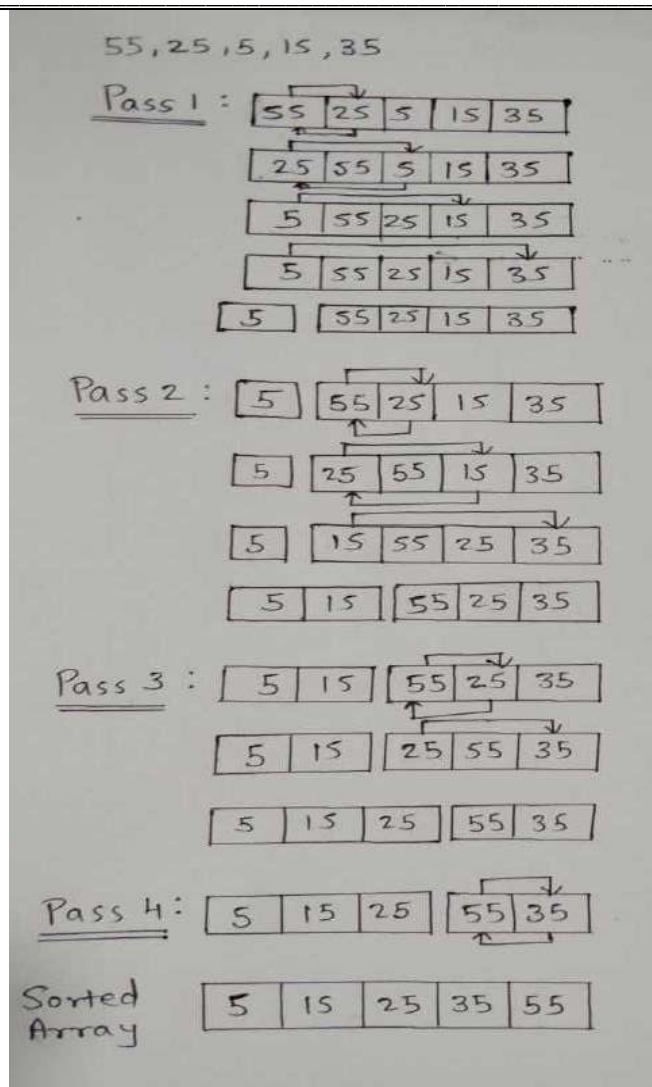 55, 25, 5, 15, 35
Pass 1 : 55 25 5 15 35
25 55 5 15 35
5 55 25 15 35
5 55 25 15 35
5 55 25 15 35
Pass 2 : 5 55 25 15 35
5 25 55 15 35
5 15 55 25 35
5 15 55 25 35
Pass 3 : 5 15 55 25 35
5 15 25 55 35
5 15 25 55 35
Pass 4 : 5 15 25 55 35
Sorted 5 15 25 35 55
Array